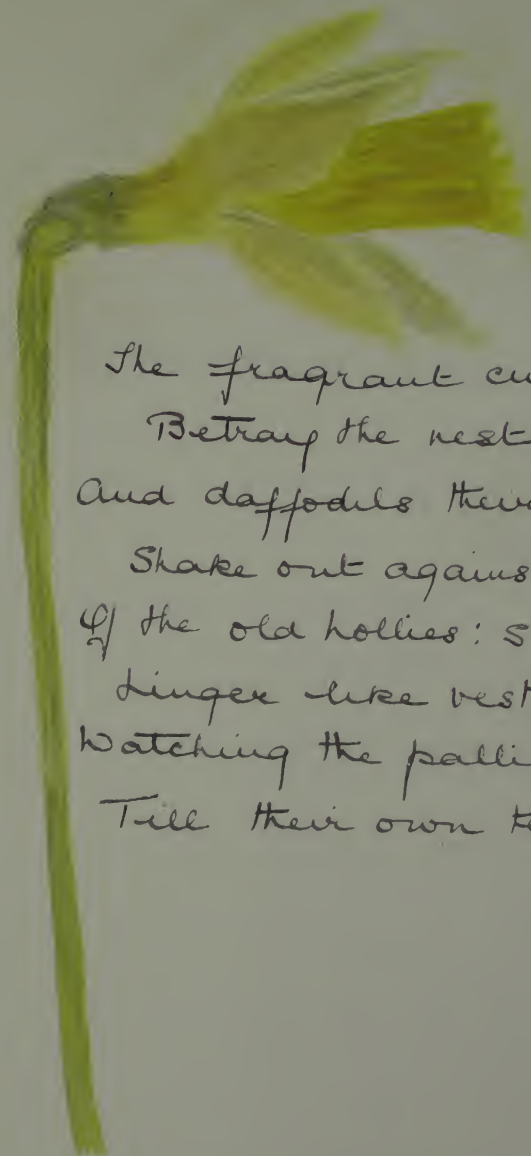 The fragrant cu
Betray the nest
And daffodils
Shake out agains
Of the old hollies: s
Linger like vest
Watching the palli
Till their own te